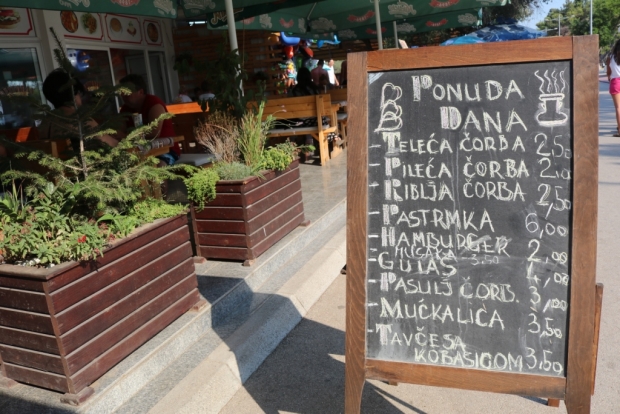 PONUDA
DANA
- TELEĆA ČORBA 2,50
- PILEĆA ČORBA 2,-
- RIBLJA ČORBA 2,50
- PASTRMKA 6,00
- HAMBURGER 2,00
MUSAKA 3,50
- GULAŠ
- PASULJ ČORB. 3,00
- MUĆKALICA 3,50
- TAVČE SA
KOBASICOM 3,50